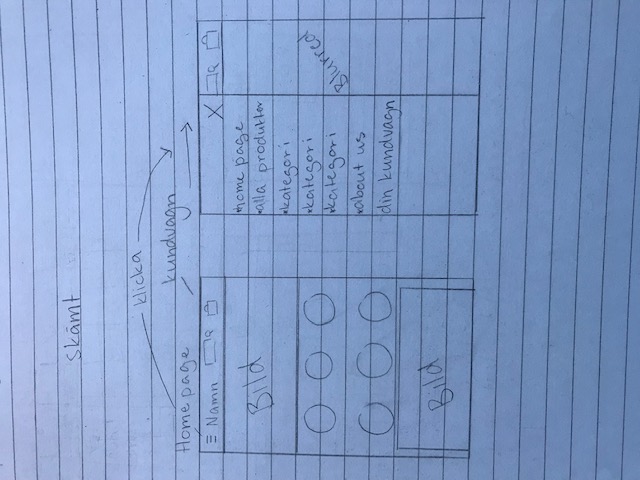 skämt
klicka
kundvagn
Home page
Namn
Bild
Bild
X
•home page
•alla produkter
•kategori
•kategori
•kategori
•about us
din kundvagn
Blurred